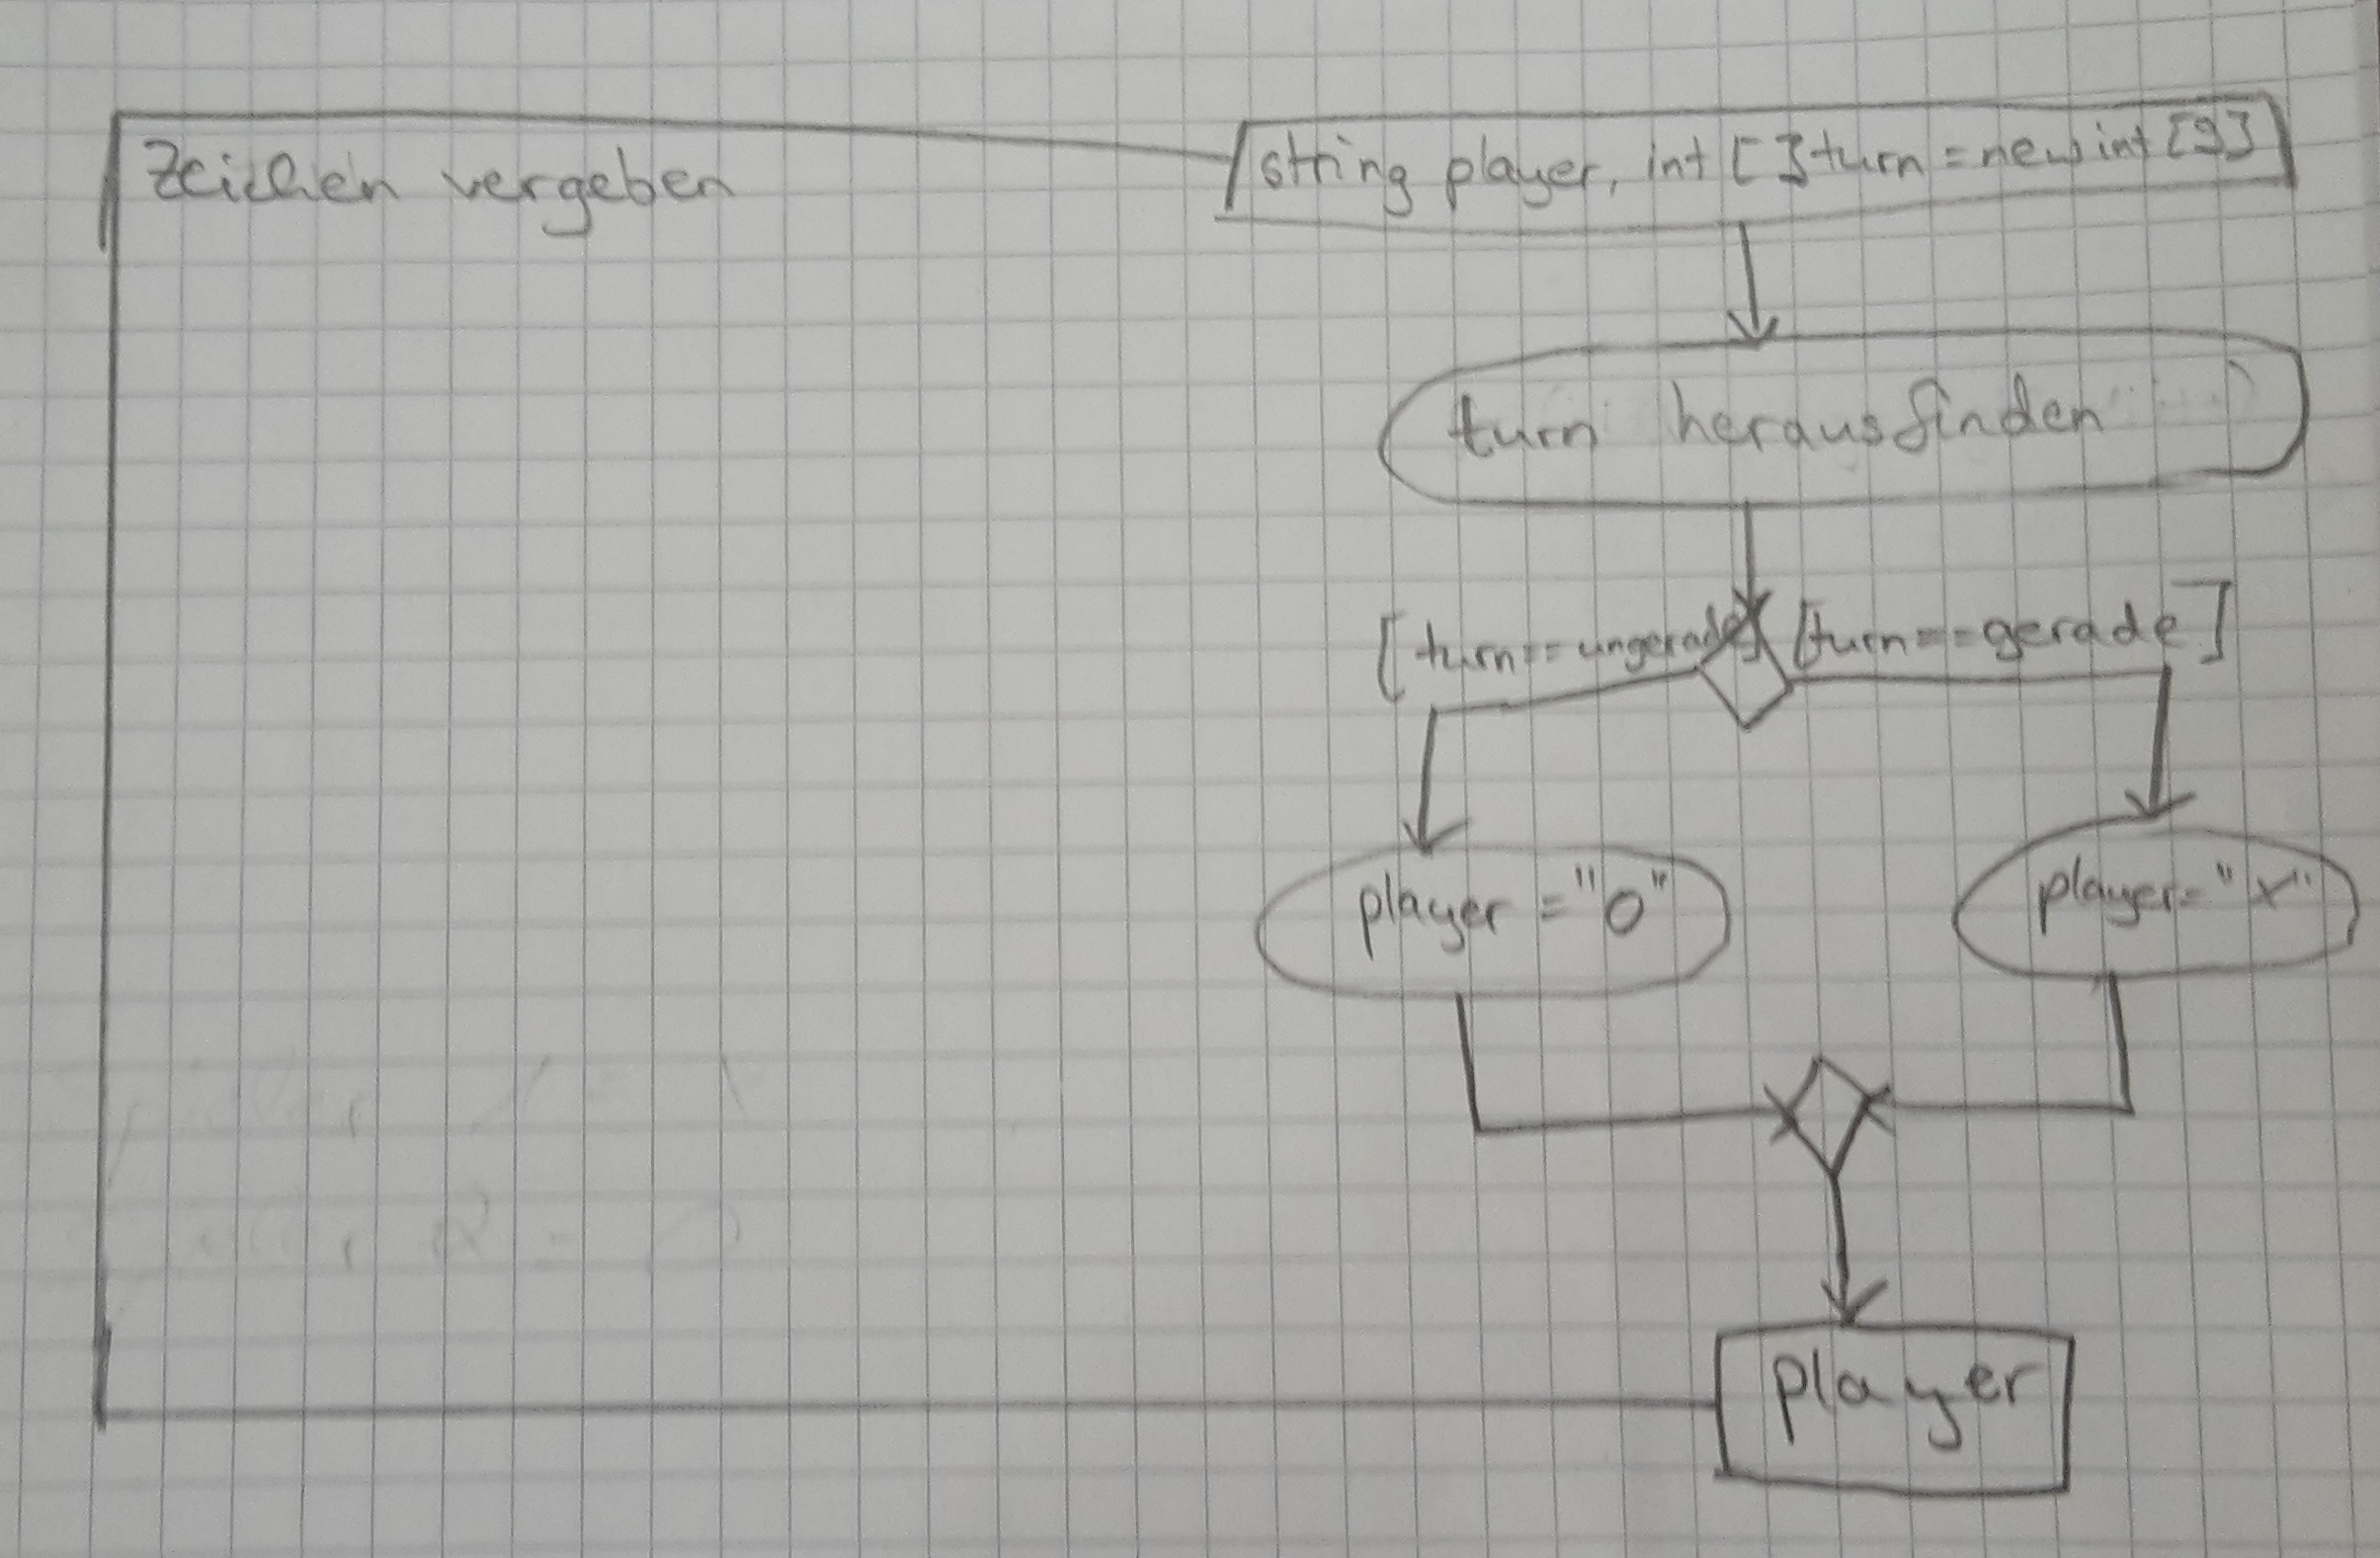 Zeichen vergeben
string player, int [] turn = new int [9]
turn herausfinden
[turn == ungerade] [turn == gerade]
player = "O"
player = "x"
player